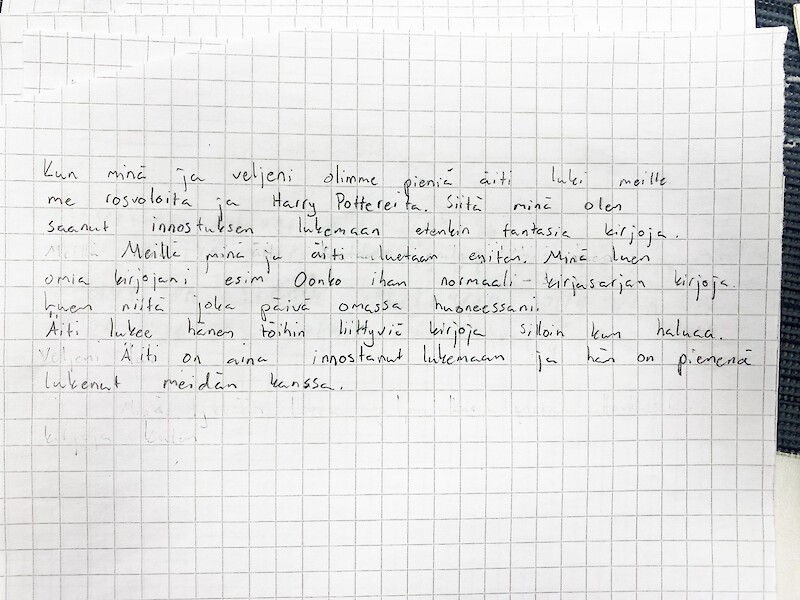 Kun minä ja veljeni olimme pieniä äiti luki meille
me rosvoloita ja Harry Pottereita. Siitä minä olen
saanut innostuksen lukemaan etenkin fantasia kirjoja.
Meillä minä ja äiti luetaan eniten. Minä luen
omia kirjojani esim Oonko ihan normaali-kirjasarjan kirjoja.
Luen niitä joka päivä omassa huoneessani.
Äiti lukee hänen töihin liittyviä kirjoja silloin kun haluaa.
Äiti on aina innostanut lukemaan ja hän on pienenä
lukenut meidän kanssa.